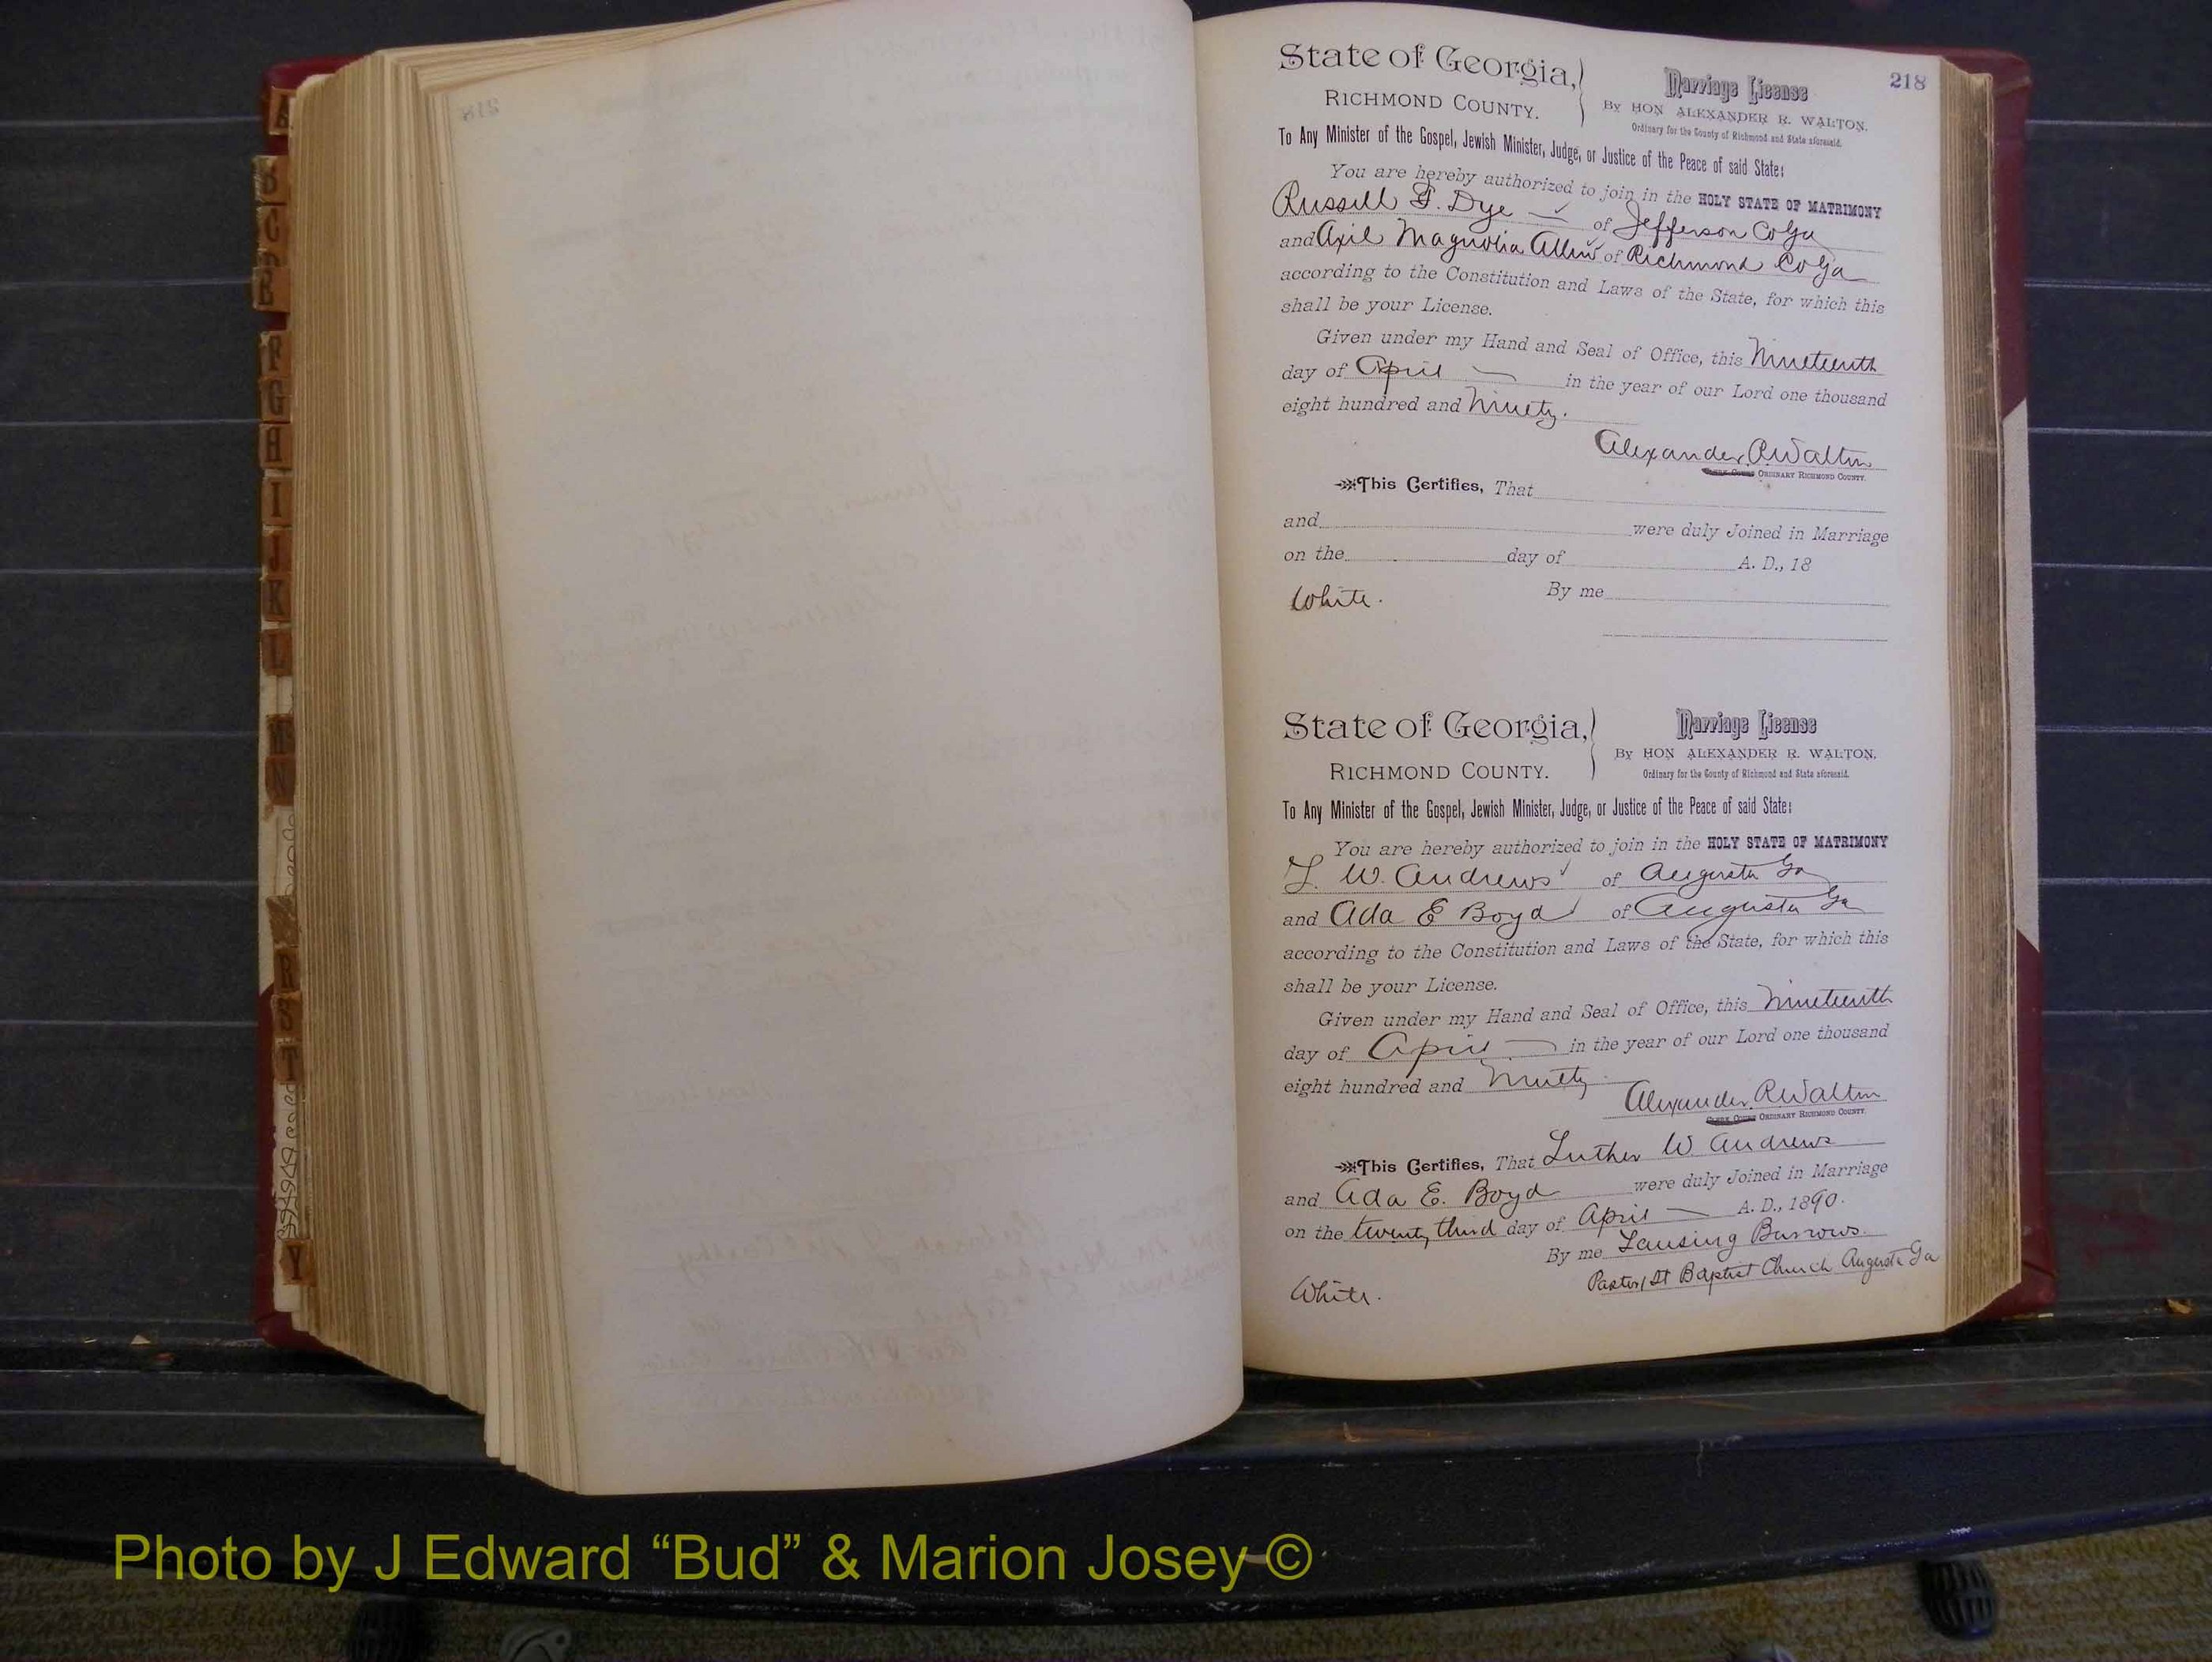 218
State of Georgia,
RICHMOND COUNTY.
Marriage License
By HON ALEXANDER R. WALTON.
Ordinary for the County of Richmond and State aforesaid.
To Any Minister of the Gospel, Jewish Minister, Judge, or Justice of the Peace of said State:
You are hereby authorized to join in the HOLY STATE OF MATRIMONY
Russell F. Dye of Jefferson Co Ga
and Axil Magnolia Allen of Richmond Co Ga
according to the Constitution and Laws of the State, for which this
shall be your License.
Given under my Hand and Seal of Office, this Nineteenth
day of April in the year of our Lord one thousand
eight hundred and Ninety.
Alexander R Walton
ORDINARY RICHMOND COUNTY.
This Certifies, That
and were duly Joined in Marriage
on the day of A. D., 18
White. By me
State of Georgia,
RICHMOND COUNTY.
Marriage License
By HON ALEXANDER R. WALTON.
Ordinary for the County of Richmond and State aforesaid.
To Any Minister of the Gospel, Jewish Minister, Judge, or Justice of the Peace of said State:
You are hereby authorized to join in the HOLY STATE OF MATRIMONY
L. W. Andrews of Augusta Ga
and Ada E Boyd of Augusta Ga
according to the Constitution and Laws of the State, for which this
shall be your License.
Given under my Hand and Seal of Office, this Nineteenth
day of April in the year of our Lord one thousand
eight hundred and Ninety
Alexander R Walton
CLERK COURT ORDINARY RICHMOND COUNTY.
This Certifies, That Luther W Andrews
and Ada E. Boyd were duly Joined in Marriage
on the twenty third day of April A. D., 1890.
By me Lansing Burrows.
Pastor 1st Baptist Church Augusta Ga
White.
G
H
I
J
K
L
R
S
T
Y
Photo by J Edward “Bud” & Marion Josey ©